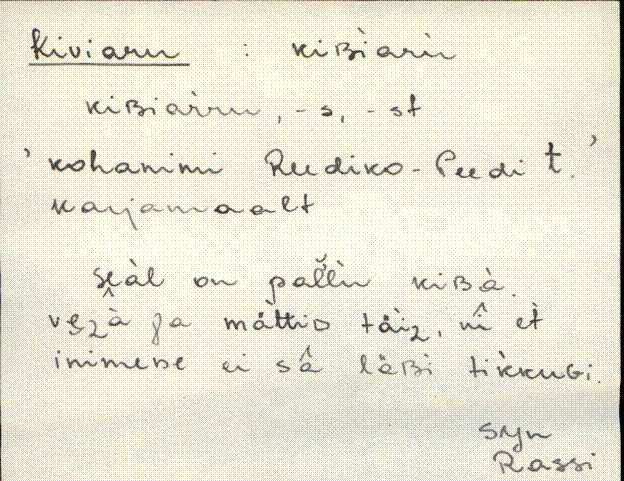 Kiviaru : kiʙ̀arù
kiʙiaŕru, -s, -st
'kohanimi Reediko-Peedi t.'
karjamaalt
seàl on pal̆l̀ù kiʙà.
vezâ ja mättiD täìz, nî et̀
inimene ei sâ läʙì tik̀kuGi.
SMn
Rassi